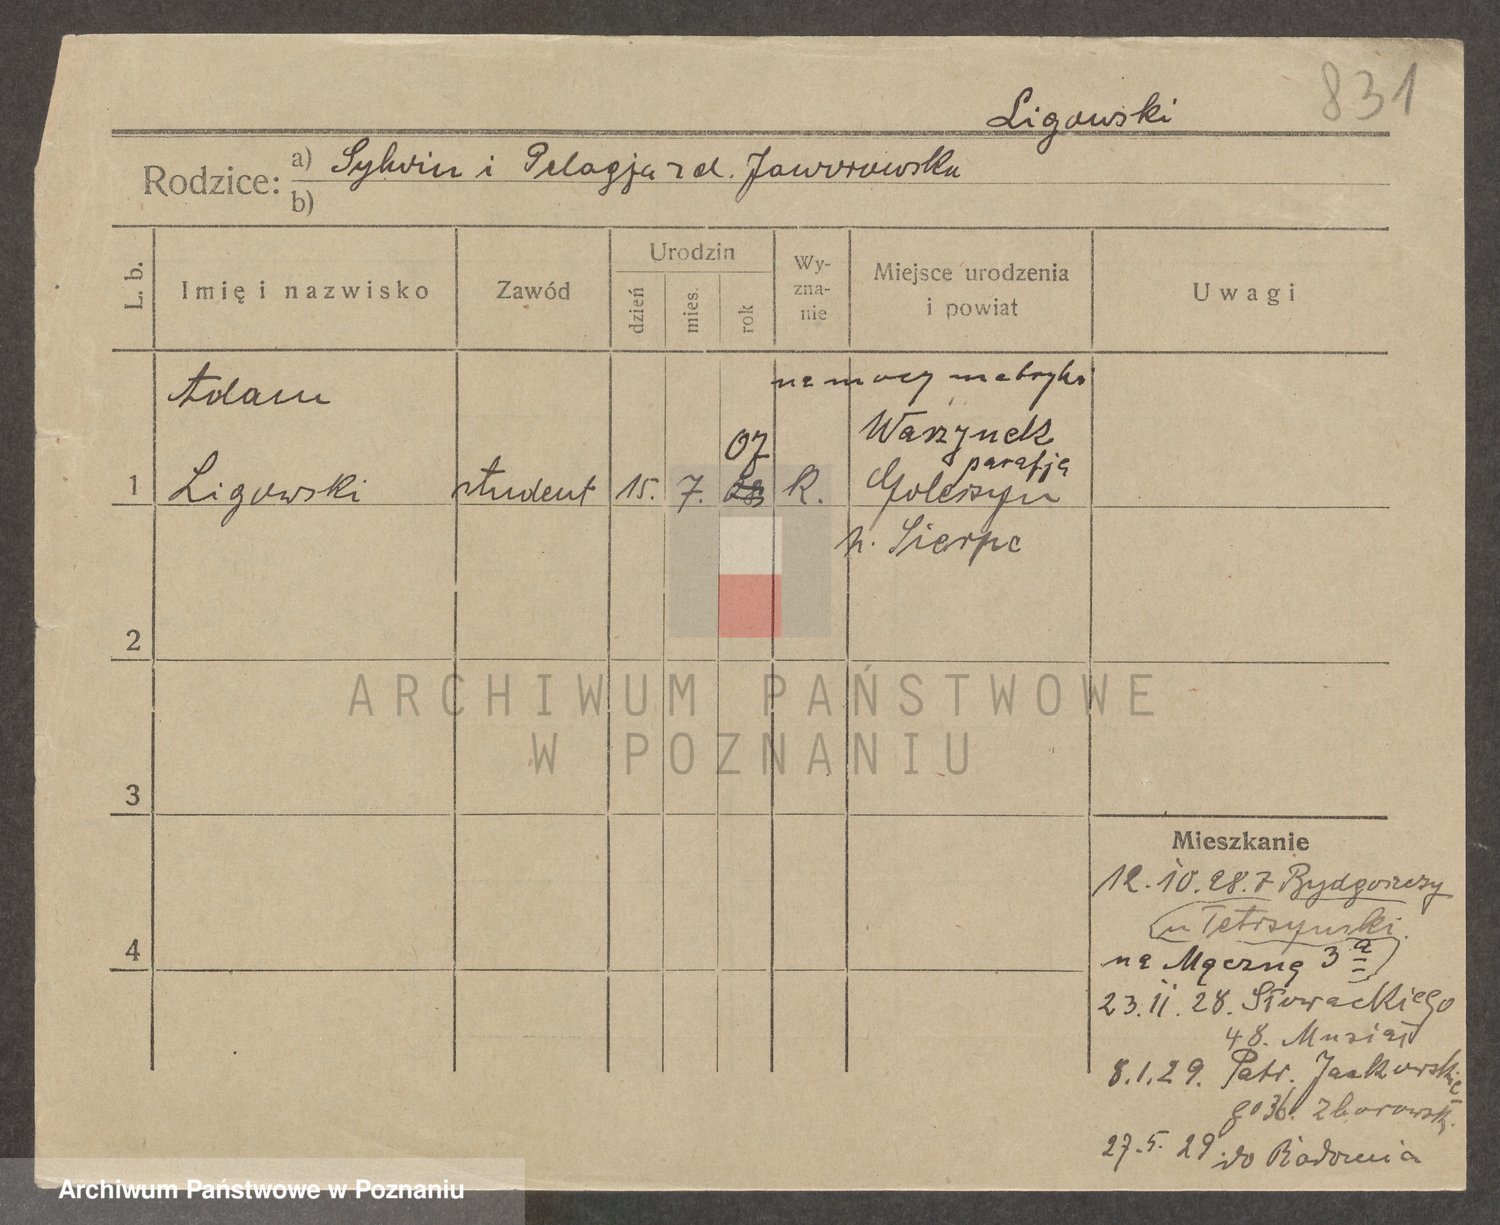 831
Ligowski
Rodzice: a) Sylwin i Pelagja z d. Jaworowska
b)
L. b.
Imię i nazwisko
Zawód
Urodzin
dzień
mies.
rok
Wy-
zna-
nie
Miejsce urodzenia
i powiat
Uwagi
na mocy metryki
Adam
07
Warzynek
parafja
1 Ligowski student 15. 7. 28 k. Goleszyn
p. Sierpc
2
ARCHIWUM PAŃSTWOWE
W POZNANIU
3
Mieszkanie
12.10.28. z Bydgoszczy
u Tetrzynski
4
na Mączną 3a
23.11.28. Słowackiego
48. Musiał
8.1.29. Patr. Jackowskie
go 36. Zborowsk.
27.5.29 do Radomia
Archiwum Państwowe w Poznaniu